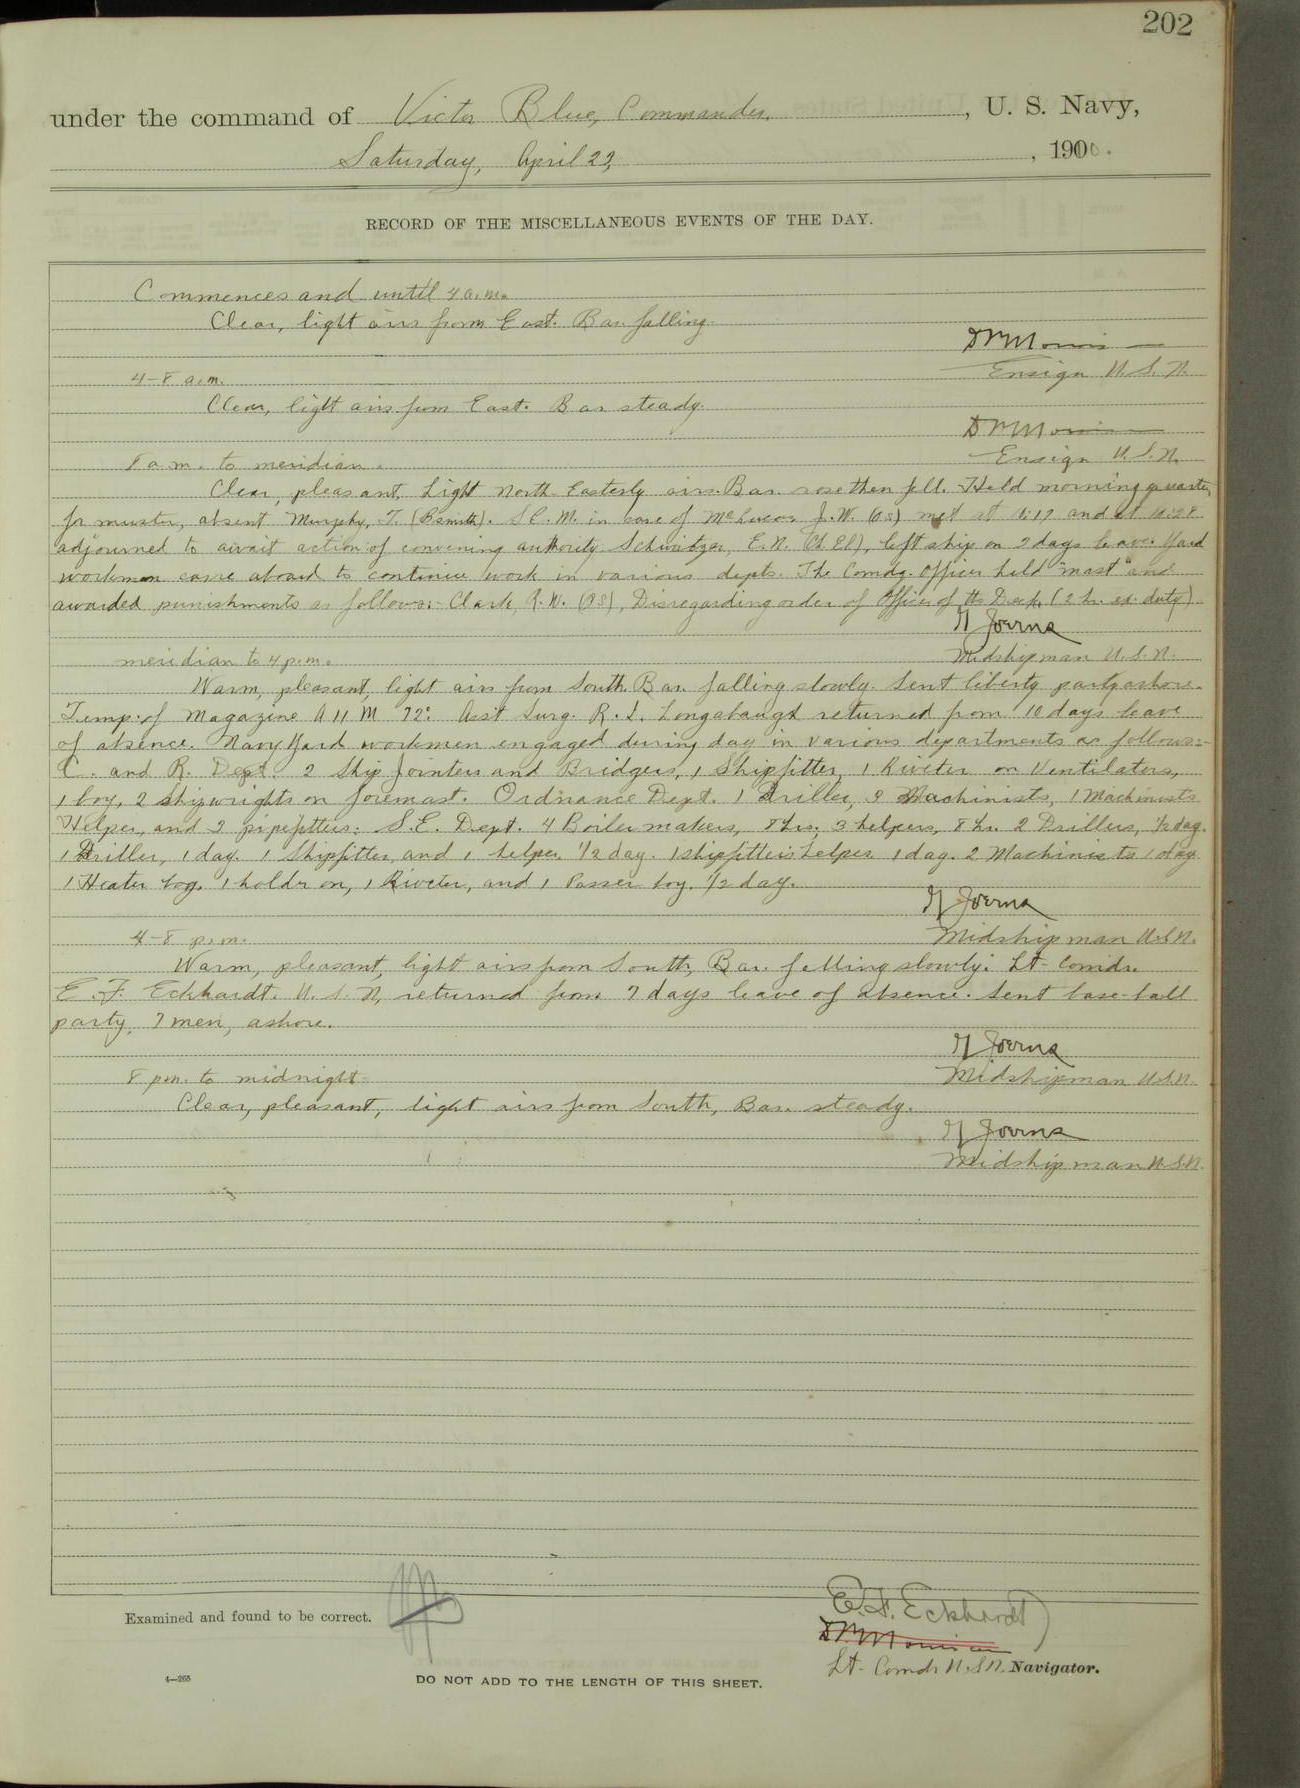 202
under the command of Victor Blue, Commander, U. S. Navy,
Saturday, April 22, 190
RECORD OF THE MISCELLANEOUS EVENTS OF THE DAY.
Commences and until 4 a.m.
Clear, light airs from East. Bar. falling.
Ensign U.S.N.
4-8 a.m.
Clear, light airs from East. Bar steady.
Ensign U.S.N.
8 a.m. to meridian.
Clear, pleasant. Light North Easterly airs. Bar. rose then fell. Held morning quarters
for muster, absent Murphy, T. (Bsmith). S.C.M. in case of J.W. (O.S) met at and at 10:28
adjourned to await action of convening authority. Schweitzer, E.N. (Ch. El), left ship on 2 days leave. Yard
workmen came aboard to continue work in various depts. The Comdg. Officer held "mast" and
awarded punishments as follows:- Clark, R.W. (O.S), Disregarding order of Officer of the Deck, (2 hr. ex. duty)
Joerns
Midshipman U.S.N.
meridian to 4 p.m.
Warm, pleasant, light airs from South. Bar. falling slowly. Sent liberty party ashore.
Temp. of Magazine A 11 M 72°. Ass't Surg. R. I. Longabaugh returned from 10 days leave
of absence. Navy Yard workmen engaged during day in various departments as follows:-
C. and R. Dept. 2 Ship Jointers and Bridgers, 1 Shipfitter, 1 Riveter on Ventilators,
1 boy, 2 shipwrights on foremast. Ordnance Dept. 1 Driller, 9 Machinists, 1 Machinists
Helper, and 2 pipefitters: S.E. Dept. 4 Boilermakers, 8 hrs; 3 helpers, 8 hr. 2 Drillers, 1/2 day.
1 Driller, 1 day. 1 Shipfitter, and 1 helper 1/2 day. 1 shipfitters helper 1 day. 2 Machinists 1 day
1 Heater boy. 1 holdr on, 1 Riveter, and 1 Passer boy. 1/2 day.
Joerns
Midshipman U.S.N.
4-8 p.m.
Warm, pleasant, light airs from South, Bar. falling slowly. Lt-Comdr.
E. F. Eckhardt. U.S.N, returned from 7 days leave of absence. Sent base-ball
party, 7 men, ashore.
Joerns
Midshipman U.S.N.
8 p.m. to midnight
Clear, pleasant, light airs from South, Bar. steady.
Joerns
Midshipman U.S.N.
Examined and found to be correct.
E. F. Eckhardt
Lt-Comdr U.S.N. Navigator.
4—265
DO NOT ADD TO THE LENGTH OF THIS SHEET.